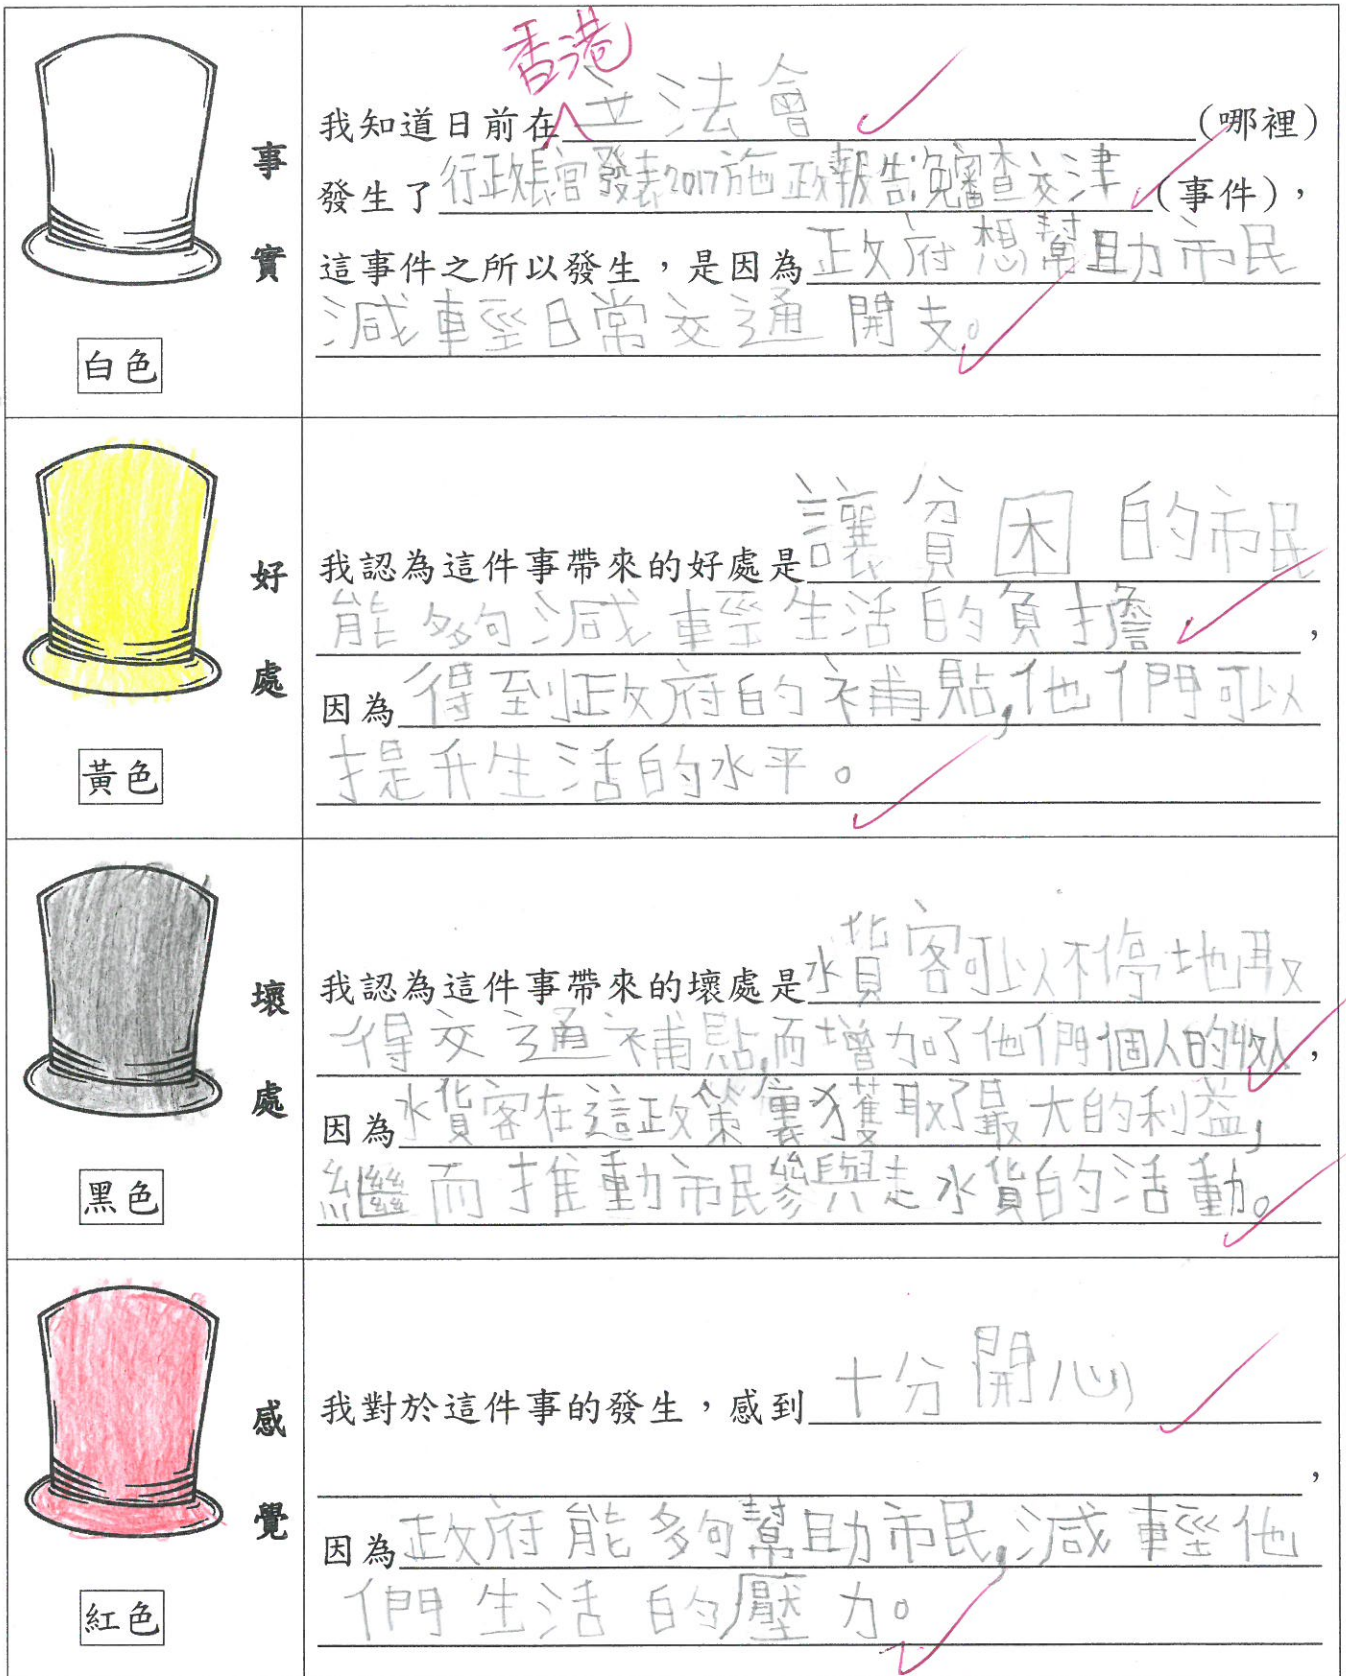 事實
白色
香港
我知道日前在立法會(哪裡)
發生了行政長官發表2017施政報告免審查交津(事件)，
這事件之所以發生，是因為政府想幫助市民
減輕日常交通開支。
好處
黃色
我認為這件事帶來的好處是讓貧困的市民
能夠減輕生活的負擔，
因為得到政府的補貼,他們可以
提升生活的水平。
壞處
黑色
我認為這件事帶來的壞處是水貨客可以不停地取
得交通補貼,而增加了他們個人的收入，
因為水貨客在這政策裏獲取了最大的利益,
繼而推動市民參與走水貨的活動。
感覺
紅色
我對於這件事的發生，感到十分開心
，
因為政府能夠幫助市民,減輕他
們生活的壓力。